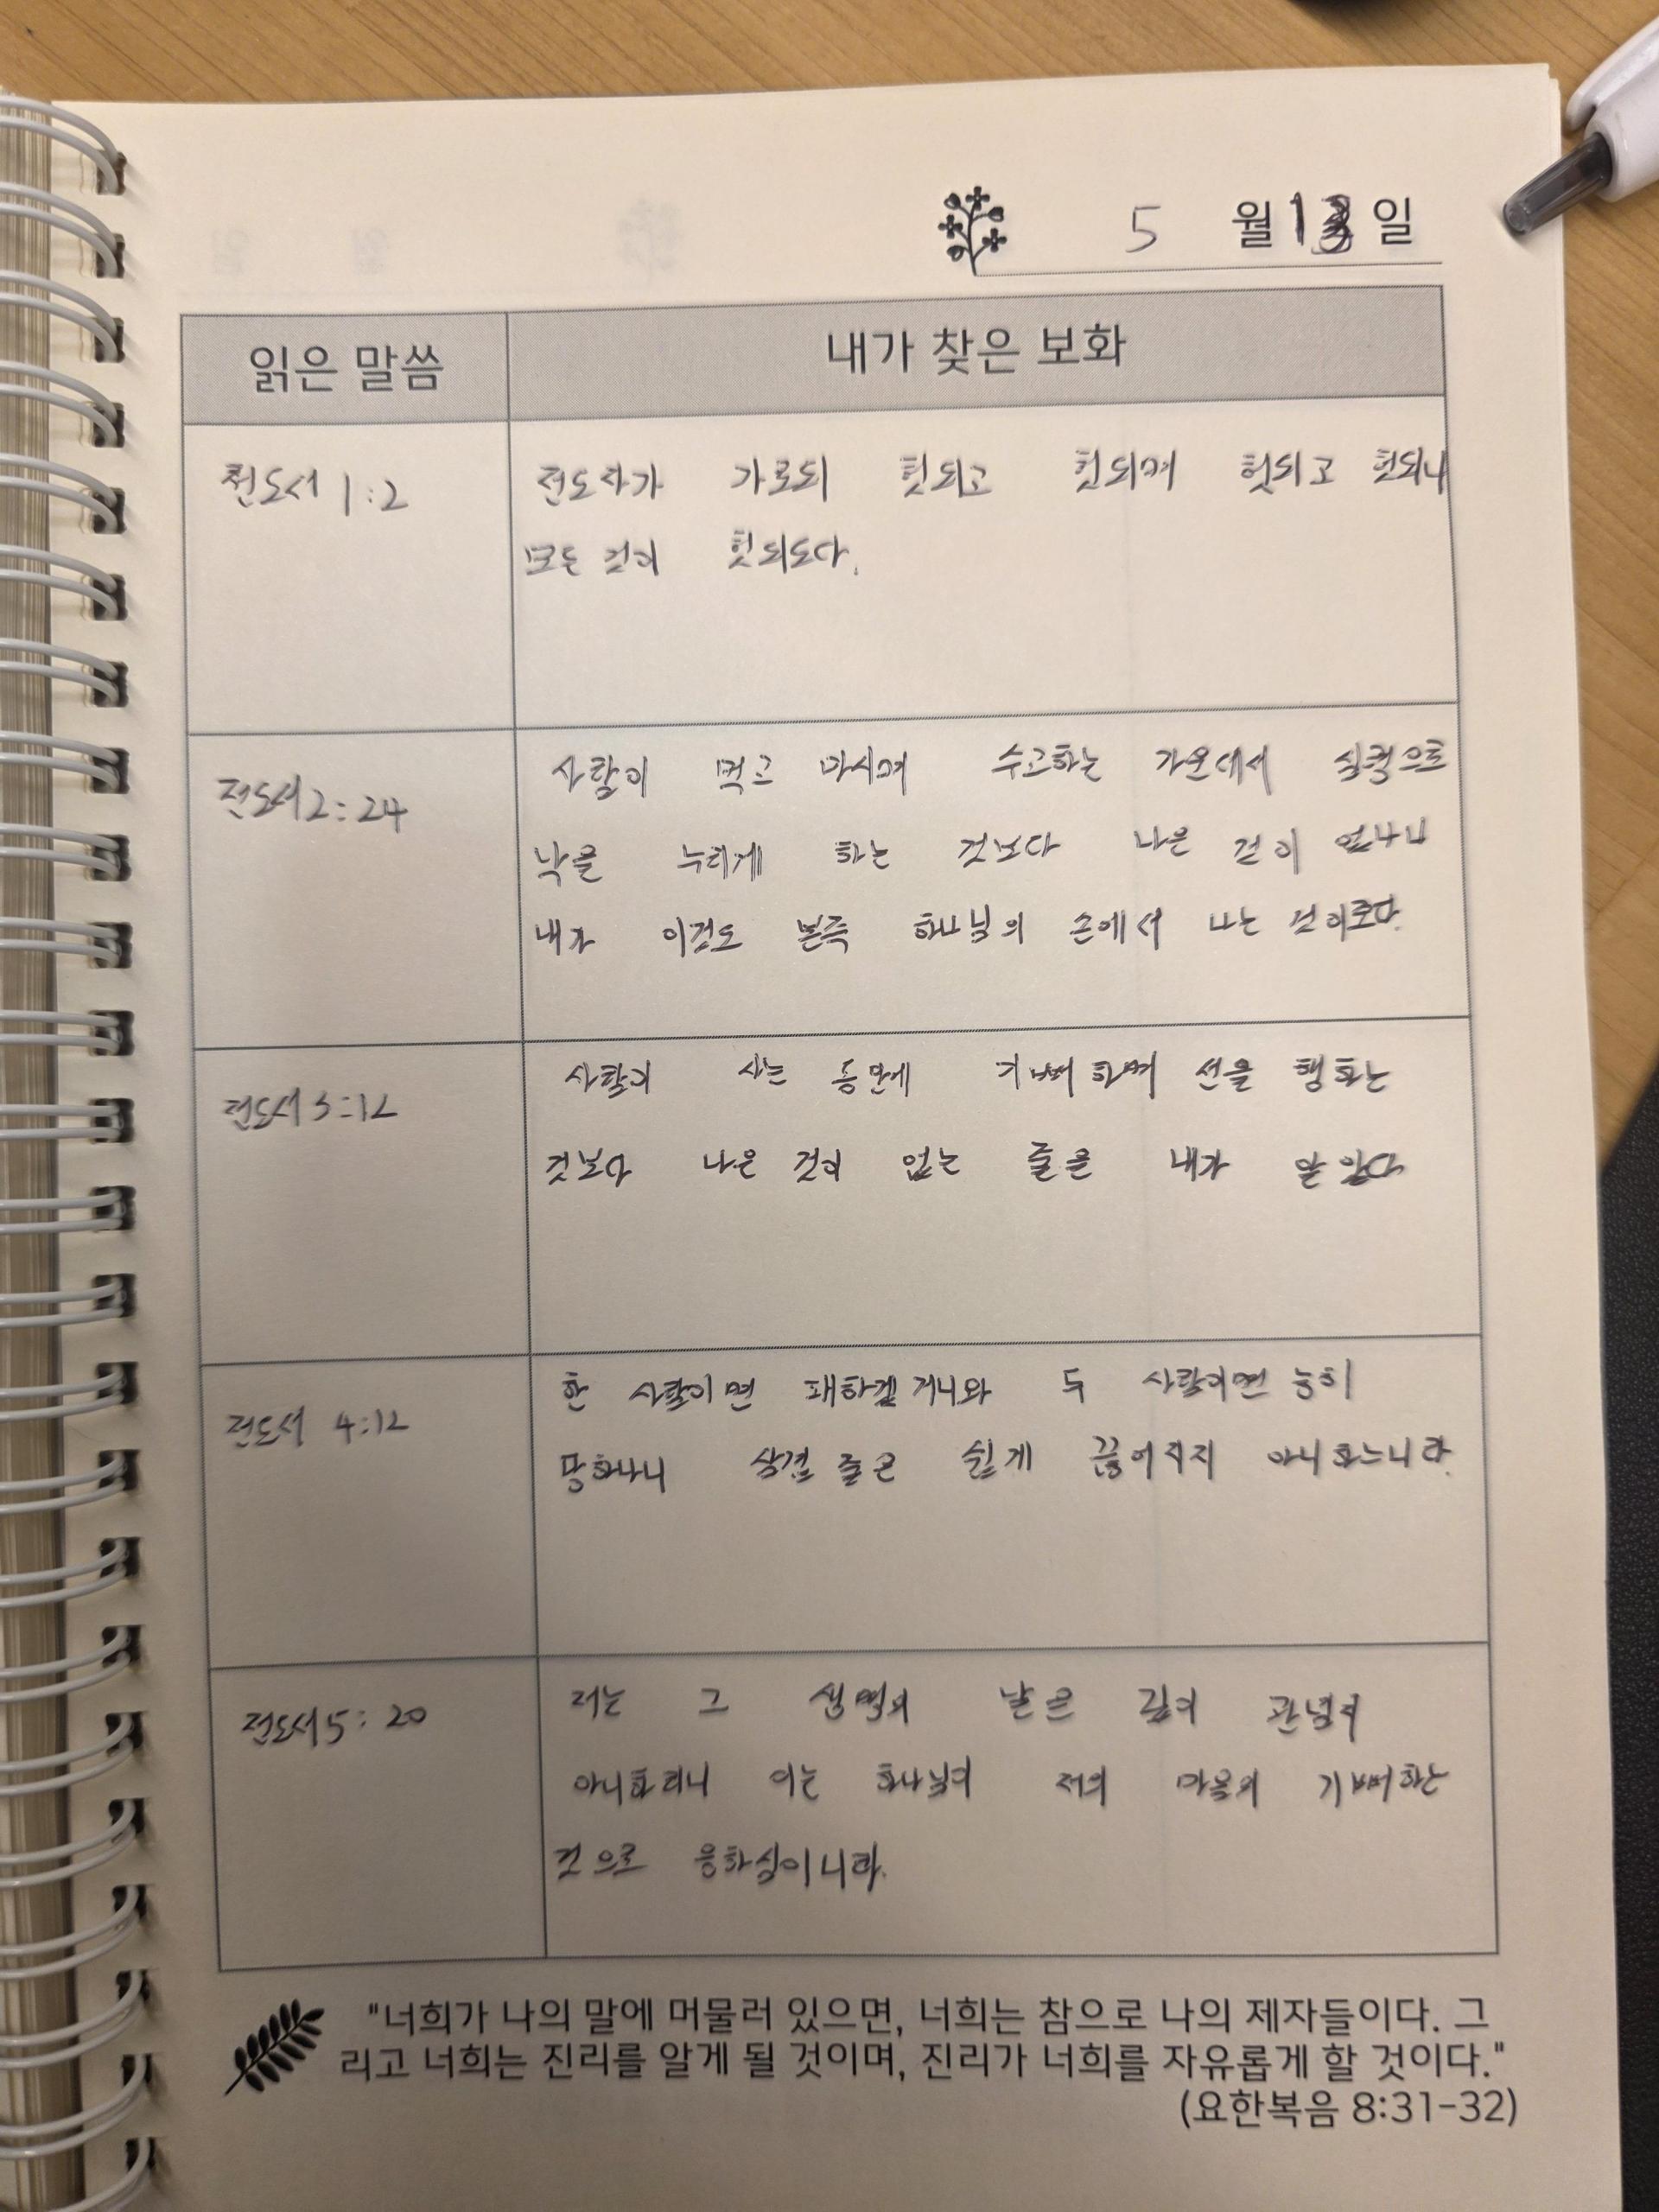 5 월 13 일
읽은 말씀 내가 찾은 보화
전도서 1:2
전도자가 가로되 헛되고 헛되며 헛되고 헛되니
모든 것이 헛되도다.
전도서 2:24
사람이 먹고 마시며 수고하는 가운데서 심령으로
낙을 누리게 하는 것보다 나은 것이 없나니
내가 이것도 본즉 하나님의 손에서 나는 것이로다.
전도서 3:12
사람이 사는 동안에 기뻐하며 선을 행하는
것보다 나은 것이 없는 줄을 내가 알았다
전도서 4:12
한 사람이면 패하겠거니와 두 사람이면 능히
당하나니 삼겹 줄은 쉽게 끊어지지 아니하느니라.
전도서 5:20
저는 그 생명의 날을 깊이 관념치
아니하리니 이는 하나님이 저의 마음의 기뻐하는
것으로 응하심이니라.
"너희가 나의 말에 머물러 있으면, 너희는 참으로 나의 제자들이다. 그
리고 너희는 진리를 알게 될 것이며, 진리가 너희를 자유롭게 할 것이다."
(요한복음 8:31-32)